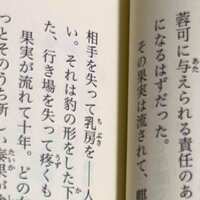 蓉可に与えられる責任のあ
になるはずだった。
その果実は流されて、麒
相手を失って乳房を――人
い。それは豹の形をした下
た、行き場を失って疼くも
果実が流れて十年。どの
っとそのうち新しい